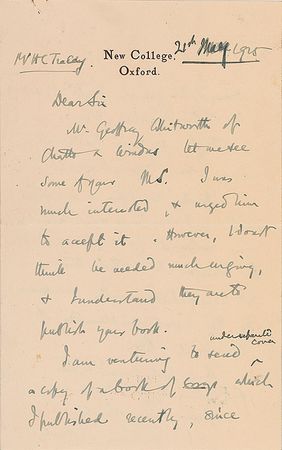 Mr H C Tracey New College, 21st May 1915
Oxford.
Dear Sir
Mr. Geoffrey Whitworth of
Chatto & Windus let me see
some of your MS. I was
much interested, & urged him
to accept it. However, I don't
think he needed much urging,
& I understand they are to
publish your book.
under separate
cover
I am venturing to send ^
a copy of a book of which
I published recently, since